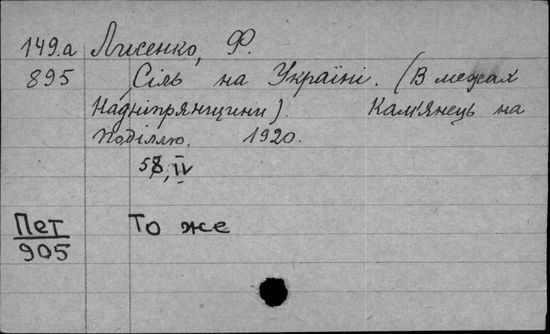 149.а Лисенко, Ф.
895 Сіль на Україні. (В межах
Надніпрянщини). Кам'янець на
Поділлю. 1920.
58, IV
Пет То же
905